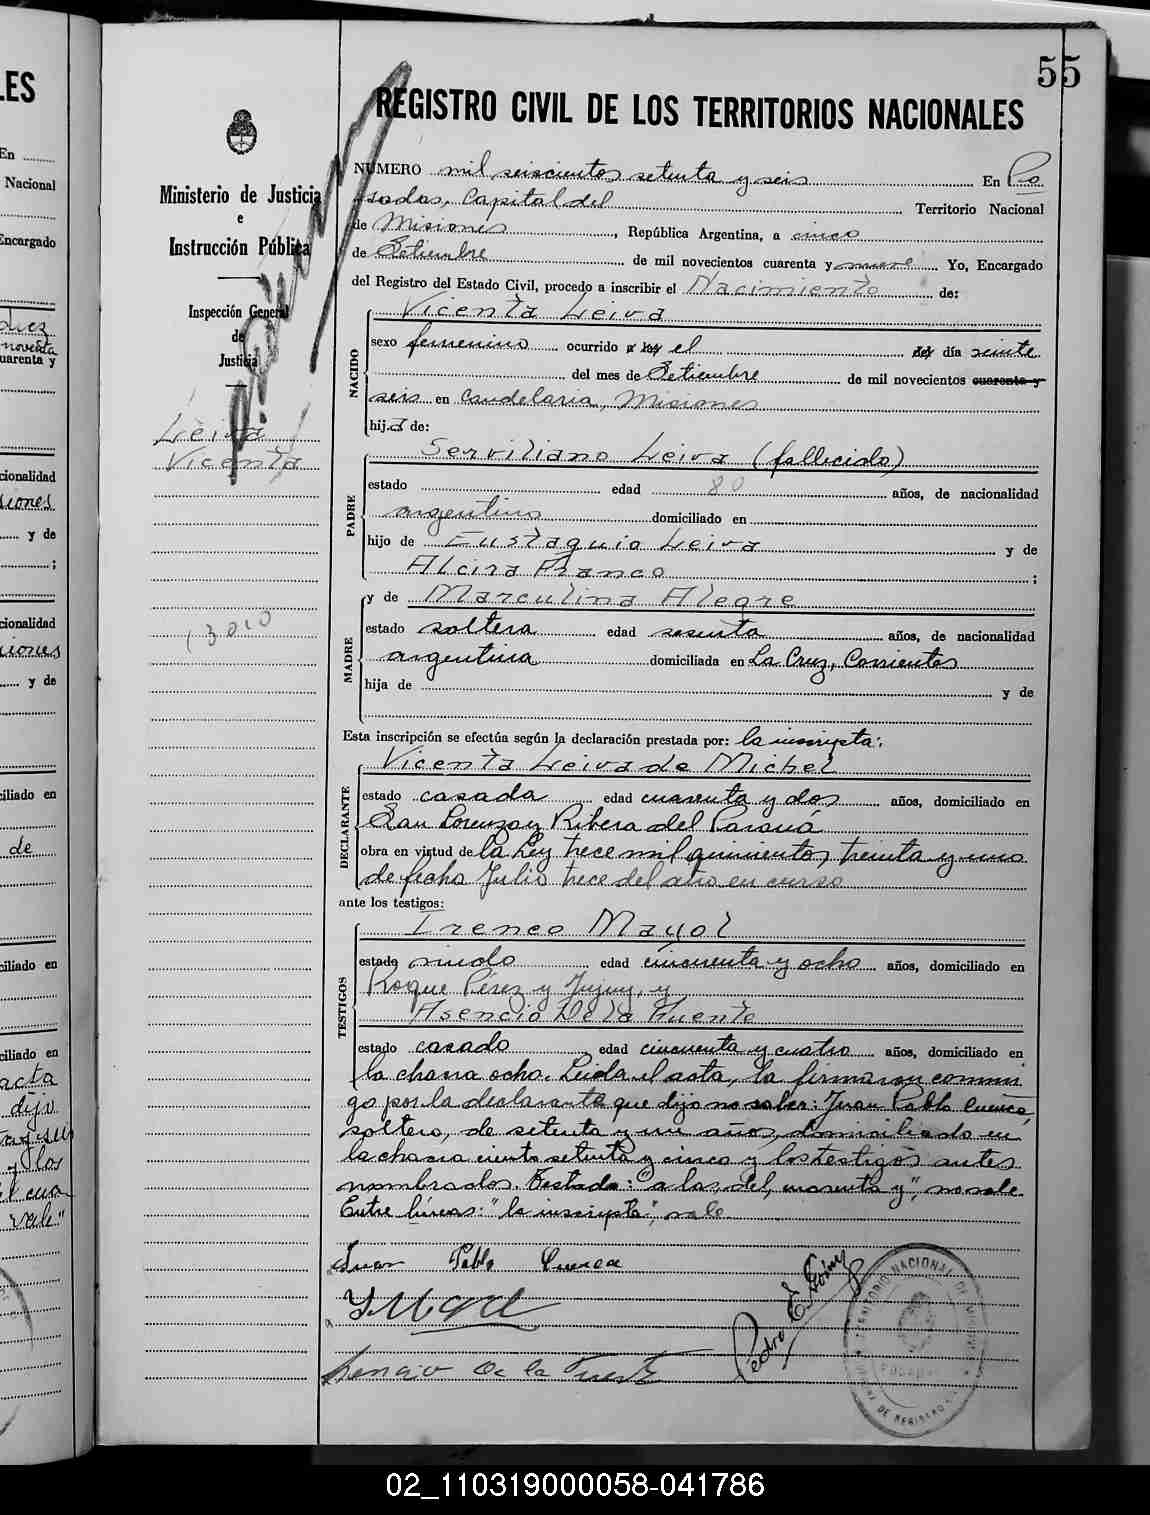 55
REGISTRO CIVIL DE LOS TERRITORIOS NACIONALES
Ministerio de Justicia
e
Instrucción Pública
Inspección General
de
Justicia
Leiva
Vicenta
3010
NUMERO mil seiscientos setenta y seis En Po
sadas, Capital del Territorio Nacional
de Misiones, República Argentina, a cinco
de Setiembre de mil novecientos cuarenta y nueve. Yo, Encargado
del Registro del Estado Civil, procedo a inscribir el Nacimiento de:
NACIDO
Vicenta Leiva
sexo femenino ocurrido a las el del día veinte
del mes de Setiembre de mil novecientos cuarenta y
seis en Candelaria, Misiones
hija de:
PADRE
Serviliano Leiva (fallecido)
estado edad 80 años, de nacionalidad
argentino domiciliado en
hijo de Eustaquio Leiva y de
Alcira Franco ;
MADRE
y de Marculina Alegre
estado soltera edad sesenta años, de nacionalidad
argentina domiciliada en La Cruz, Corrientes
hija de y de
Esta inscripción se efectúa según la declaración prestada por: la inscripta:
DECLARANTE
Vicenta Leiva de Michel
estado casada edad cuarenta y dos años, domiciliado en
San Lorenzo y Ribera del Paraná
obra en virtud de la Ley trece mil quinientos treinta y uno
de fecha Julio trece del año en curso
ante los testigos:
TESTIGOS
Ireneo Mayol
estado viudo edad cincuenta y ocho años, domiciliado en
Roque Pérez y Jujuy, y
Asencio De la Fuente
estado casado edad cincuenta y cuatro años, domiciliado en
la chacra ocho. Leida el acta, la firmaron conmi
go por la declarante que dijo no saber: Juan Pablo Cuenca,
soltero, de setenta y un años, domiciliado en
la chacra ciento setenta y cinco y los testigos antes
nombrados. Testado: "a las, del, cuarenta y", no vale
Entre líneas: "la inscripta", vale
Juan Pablo Cuenca
Asencio De la Fuente
Pedro E.
TERRITORIO NACIONAL DE MISIONES
POSADAS
02_110319000058-041786